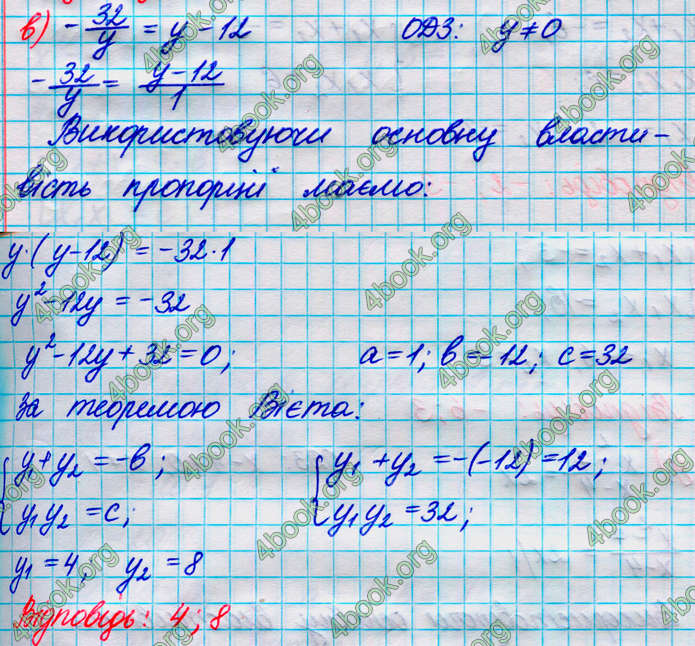 в) - 32/y = y - 12 ОДЗ: y ≠ 0
- 32/y = y-12/1
Використовуючи основну власти-
вість пропорції маємо:
y·(y-12) = -32·1
y² - 12y = -32
y² - 12y + 32 = 0; a = 1; в = -12; c = 32
За теоремою Вієта:
{ y₁ + y₂ = -в; { y₁ + y₂ = -(-12) = 12;
y₁y₂ = c; y₁y₂ = 32;
y₁ = 4, y₂ = 8
Відповідь: 4; 8
4book.org